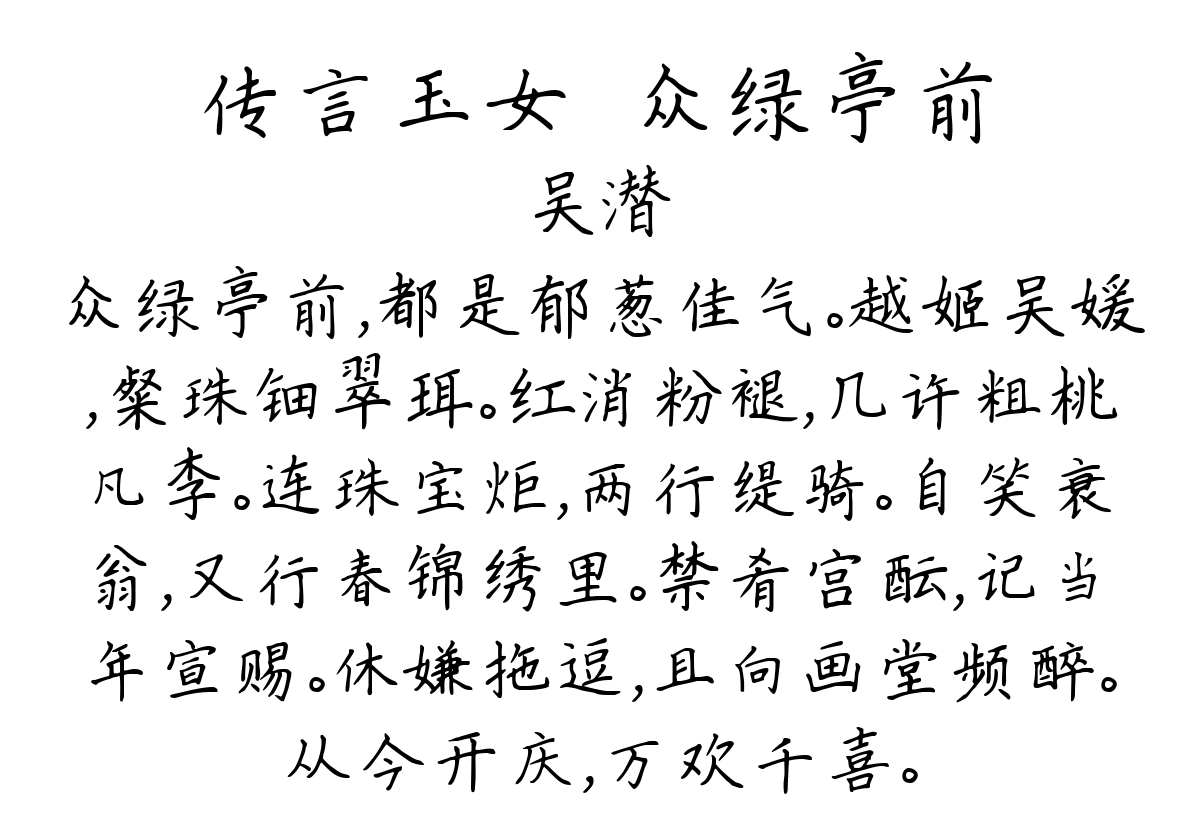 传言玉女 众绿亭前
吴潜
众绿亭前,都是郁葱佳气。越姬吴媛
,粲珠钿翠珥。红消粉褪,几许粗桃
凡李。连珠宝炬,两行缇骑。自笑衰
翁,又行春锦绣里。禁肴宫酝,记当
年宣赐。休嫌拖逗,且向画堂频醉。
从今开庆,万欢千喜。